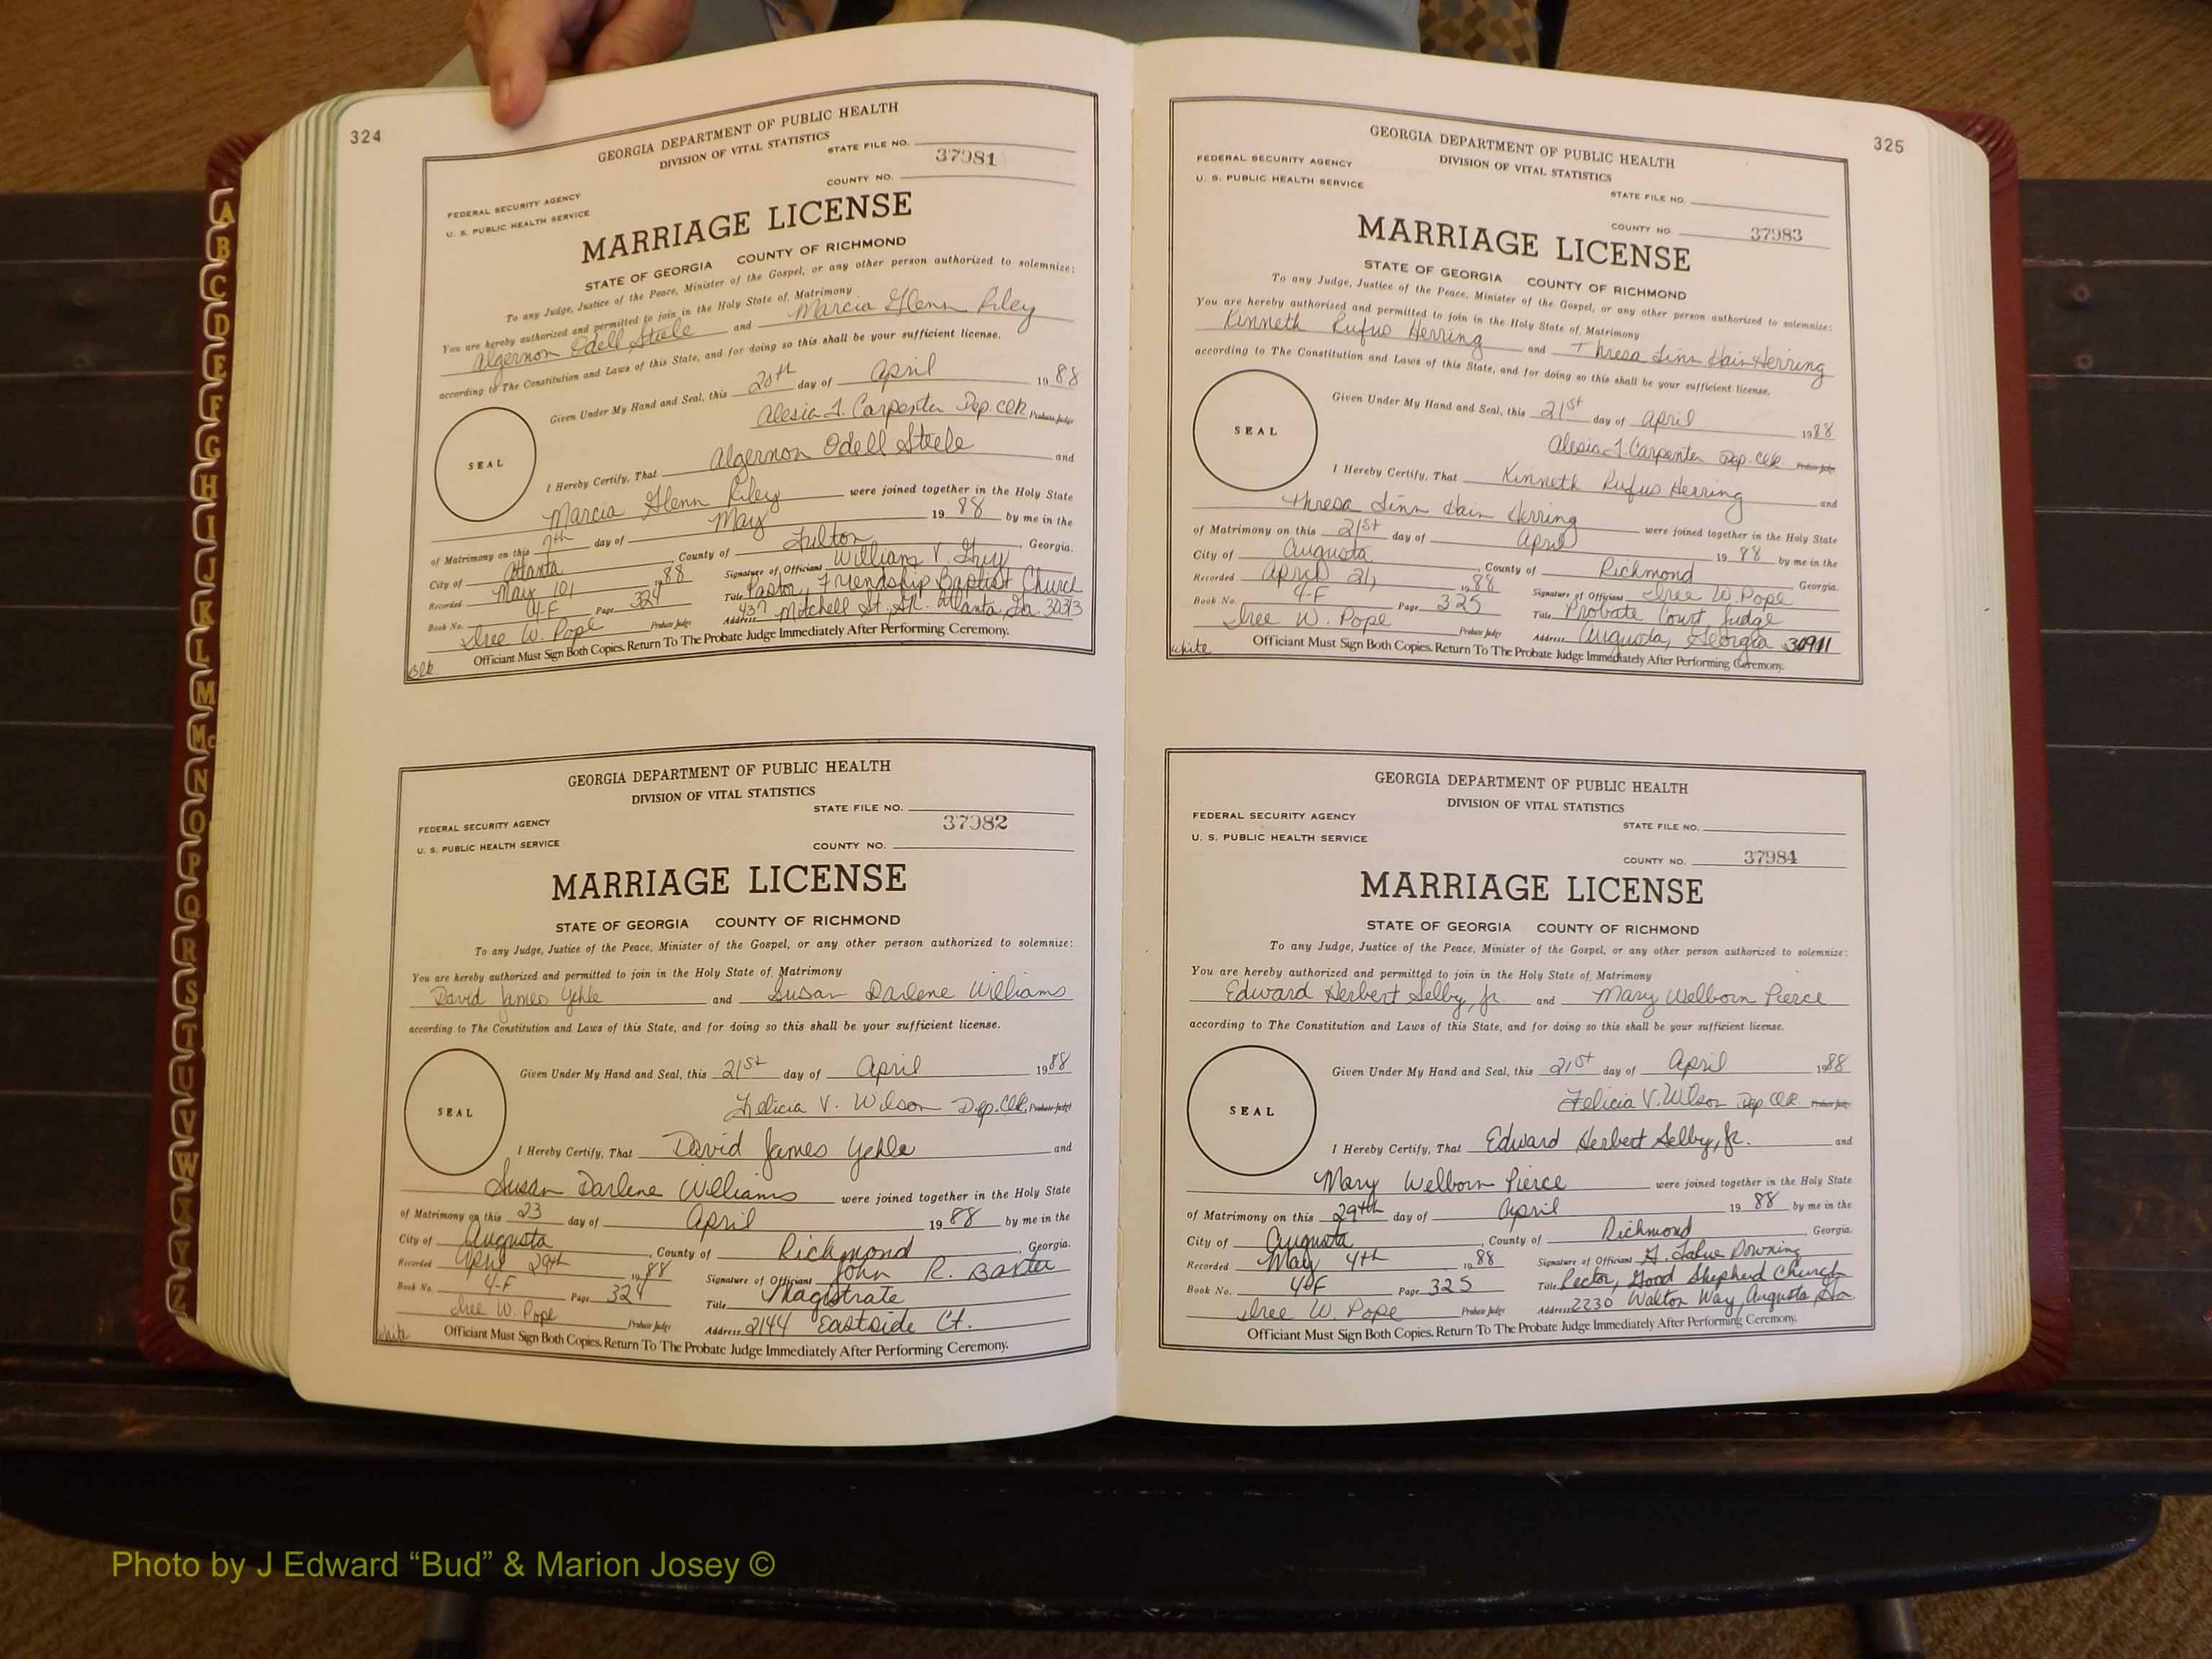 324
GEORGIA DEPARTMENT OF PUBLIC HEALTH
DIVISION OF VITAL STATISTICS
STATE FILE NO.
37981
FEDERAL SECURITY AGENCY
U. S. PUBLIC HEALTH SERVICE
COUNTY NO.
MARRIAGE LICENSE
STATE OF GEORGIA COUNTY OF RICHMOND
To any Judge, Justice of the Peace, Minister of the Gospel, or any other person authorized to solemnize:
You are hereby authorized and permitted to join in the Holy State of Matrimony
Algernon Odell Steele and Marcia Glenn Riley
according to The Constitution and Laws of this State, and for doing so this shall be your sufficient license.
Given Under My Hand and Seal, this 20th day of April 1988
Alesia J. Carpenter Dep. Clk. Probate Judge
SEAL
I Hereby Certify, That Algernon Odell Steele and
Marcia Glenn Riley were joined together in the Holy State
of Matrimony on this 7th day of May 1988 by me in the
City of Atlanta County of Fulton, Georgia.
Recorded May 10, 1988 Signature of Officiant William V. Guy
Book No. 4-F Page 324 Title Pastor, Friendship Baptist Church
Iree W. Pope Probate Judge Address 437 Mitchell St. Atlanta, Ga. 30313
Officiant Must Sign Both Copies. Return To The Probate Judge Immediately After Performing Ceremony.
Blk.
GEORGIA DEPARTMENT OF PUBLIC HEALTH
DIVISION OF VITAL STATISTICS
STATE FILE NO.
37982
FEDERAL SECURITY AGENCY
U. S. PUBLIC HEALTH SERVICE
COUNTY NO.
MARRIAGE LICENSE
STATE OF GEORGIA COUNTY OF RICHMOND
To any Judge, Justice of the Peace, Minister of the Gospel, or any other person authorized to solemnize:
You are hereby authorized and permitted to join in the Holy State of Matrimony
David James Yehle and Susan Darlene Williams
according to The Constitution and Laws of this State, and for doing so this shall be your sufficient license.
Given Under My Hand and Seal, this 21st day of April 1988
Felicia V. Wilson Dep. Clk. Probate Judge
SEAL
I Hereby Certify, That David James Yehle and
Susan Darlene Williams were joined together in the Holy State
of Matrimony on this 23 day of April 1988 by me in the
City of Augusta, County of Richmond, Georgia.
Recorded April 29th 1988 Signature of Officiant John R. Baxter
Book No. 4-F Page 324 Title Magistrate
Iree W. Pope Probate Judge Address 2144 Eastside Ct.
White Officiant Must Sign Both Copies. Return To The Probate Judge Immediately After Performing Ceremony.
325
GEORGIA DEPARTMENT OF PUBLIC HEALTH
DIVISION OF VITAL STATISTICS
FEDERAL SECURITY AGENCY
U. S. PUBLIC HEALTH SERVICE
STATE FILE NO.
COUNTY NO. 37983
MARRIAGE LICENSE
STATE OF GEORGIA COUNTY OF RICHMOND
To any Judge, Justice of the Peace, Minister of the Gospel, or any other person authorized to solemnize:
You are hereby authorized and permitted to join in the Holy State of Matrimony
Kinneth Rufus Herring and Thresa Linn Hain Herring
according to The Constitution and Laws of this State, and for doing so this shall be your sufficient license.
Given Under My Hand and Seal, this 21st day of April 1988
Alesia J. Carpenter Dep. Clk. Probate Judge
SEAL
I Hereby Certify, That Kinneth Rufus Herring and
Thresa Linn Hain Herring were joined together in the Holy State
of Matrimony on this 21st day of April 1988 by me in the
City of Augusta, County of Richmond Georgia.
Recorded April 21, 1988 Signature of Officiant Iree W. Pope
Book No. 4-F Page 325 Title Probate Court Judge
Iree W. Pope Probate Judge Address Augusta, Georgia 30911
White Officiant Must Sign Both Copies. Return To The Probate Judge Immediately After Performing Ceremony.
GEORGIA DEPARTMENT OF PUBLIC HEALTH
DIVISION OF VITAL STATISTICS
FEDERAL SECURITY AGENCY
U. S. PUBLIC HEALTH SERVICE
STATE FILE NO.
COUNTY NO. 37984
MARRIAGE LICENSE
STATE OF GEORGIA COUNTY OF RICHMOND
To any Judge, Justice of the Peace, Minister of the Gospel, or any other person authorized to solemnize:
You are hereby authorized and permitted to join in the Holy State of Matrimony
Edward Herbert Selby, Jr. and Mary Welborn Pierce
according to The Constitution and Laws of this State, and for doing so this shall be your sufficient license.
Given Under My Hand and Seal, this 21st day of April 1988
Felicia V. Wilson Dep Clk Probate Judge
SEAL
I Hereby Certify, That Edward Herbert Selby, Jr. and
Mary Welborn Pierce were joined together in the Holy State
of Matrimony on this 29th day of April 1988 by me in the
City of Augusta, County of Richmond, Georgia.
Recorded May 4th 1988 Signature of Officiant Downing
Book No. 4-F Page 325 Title Rector, Good Shepherd Church
Iree W. Pope Probate Judge Address 2230 Walton Way, Augusta, Ga
Officiant Must Sign Both Copies. Return To The Probate Judge Immediately After Performing Ceremony.
A
B
C
D
E
F
G
H
I
J
K
L
M
Mc
N
O
P
Q
R
S
T
U
V
W
X
Y
Z
Photo by J Edward “Bud” & Marion Josey ©